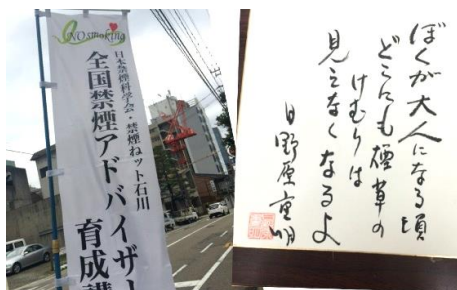 NO smoking
日本禁煙科学会・禁煙ねット石川
全国禁煙アドバイザー
育成講
ぼくが大人になる頃
どこにも煙草の
けむりは
見えなくなるよ
日野原重明